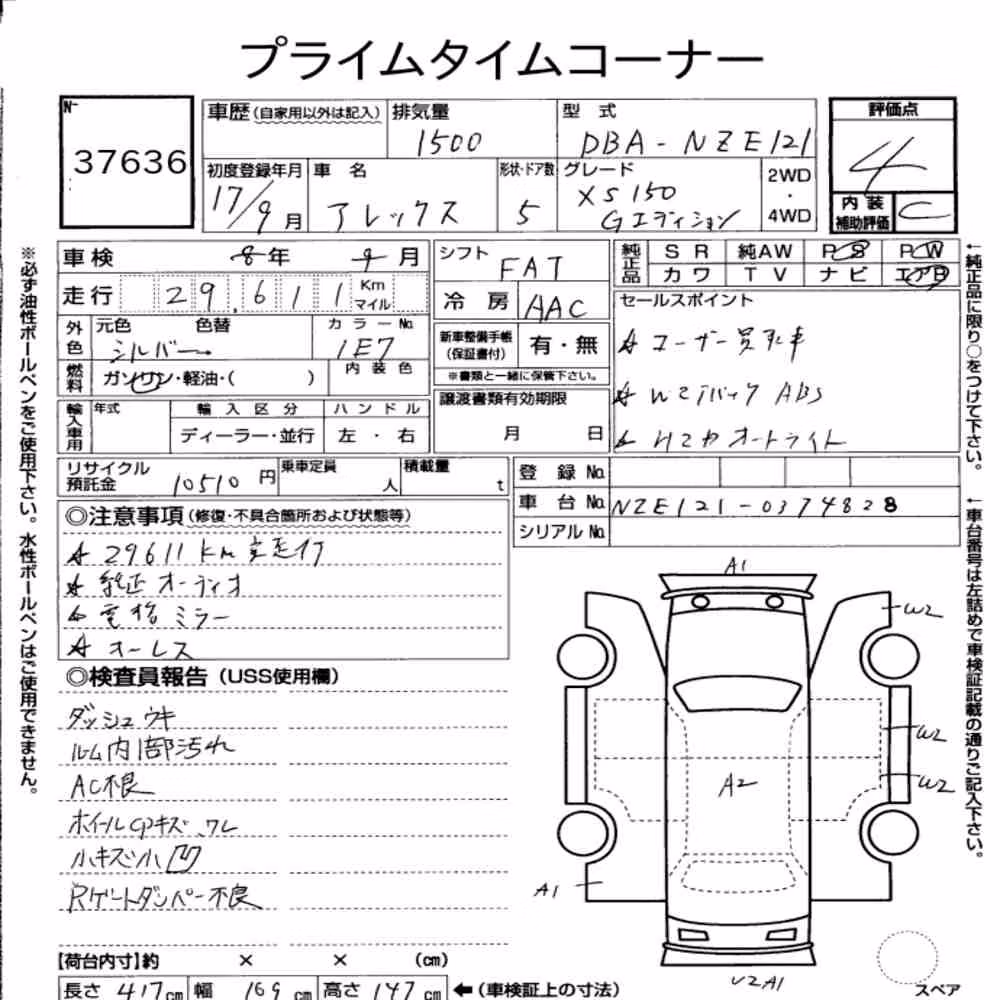 プライムタイムコーナー
No
37636
車歴(自家用以外は記入)
排気量
1500
型式
DBA-NZE121
評価点
4
内装補助評価
C
初度登録年月
17/9月
車名
アレックス
形状・ドア数
5
グレード
XS150
Gエディション
2WD
・
4WD
車検 8年 9月
シフト
FAT
純正品
SR 純AW PS PW
カワ TV ナビ エアB
走行 29,611 Km マイル
冷房 AAC
セールスポイント
外色 元色 色替 カラーNo.
シルバー 1E7
新車整備手帳(保証書付) 有・無
※書類と一緒に保管下さい。
☆ユーザー買取車
燃料 ガソリン・軽油・( )
内装色
譲渡書類有効期限
月 日
☆Wエアバック ABS
輸入車用 年式 輸入区分 ハンドル
ディーラー・並行 左・右
☆HIDオートライト
リサイクル預託金 10510円
乗車定員 人
積載量 t
登録No.
車台No. NZE121-0374828
シリアルNo.
◎注意事項(修復・不具合箇所および状態等)
☆29611km実走行
☆純正オーディオ
☆電格ミラー
☆キーレス
◎検査員報告(USS使用欄)
ダッシュウキ
ルーム内部汚れ
AC不良
ホイールCPキズ、ワレ
小キズ小凹
Rゲートダンパー不良
【荷台内寸】約 × × (cm)
長さ 417cm 幅 169cm 高さ 147cm ←(車検証上の寸法)
A1
W2
W2
W2
A2
A1
U2A1
スペア
※必ず油性ボールペンをご使用下さい。水性ボールペンはご使用できません。
←純正品に限り○をつけて下さい。
←車台番号は左詰めで車検証記載の通りご記入下さい。